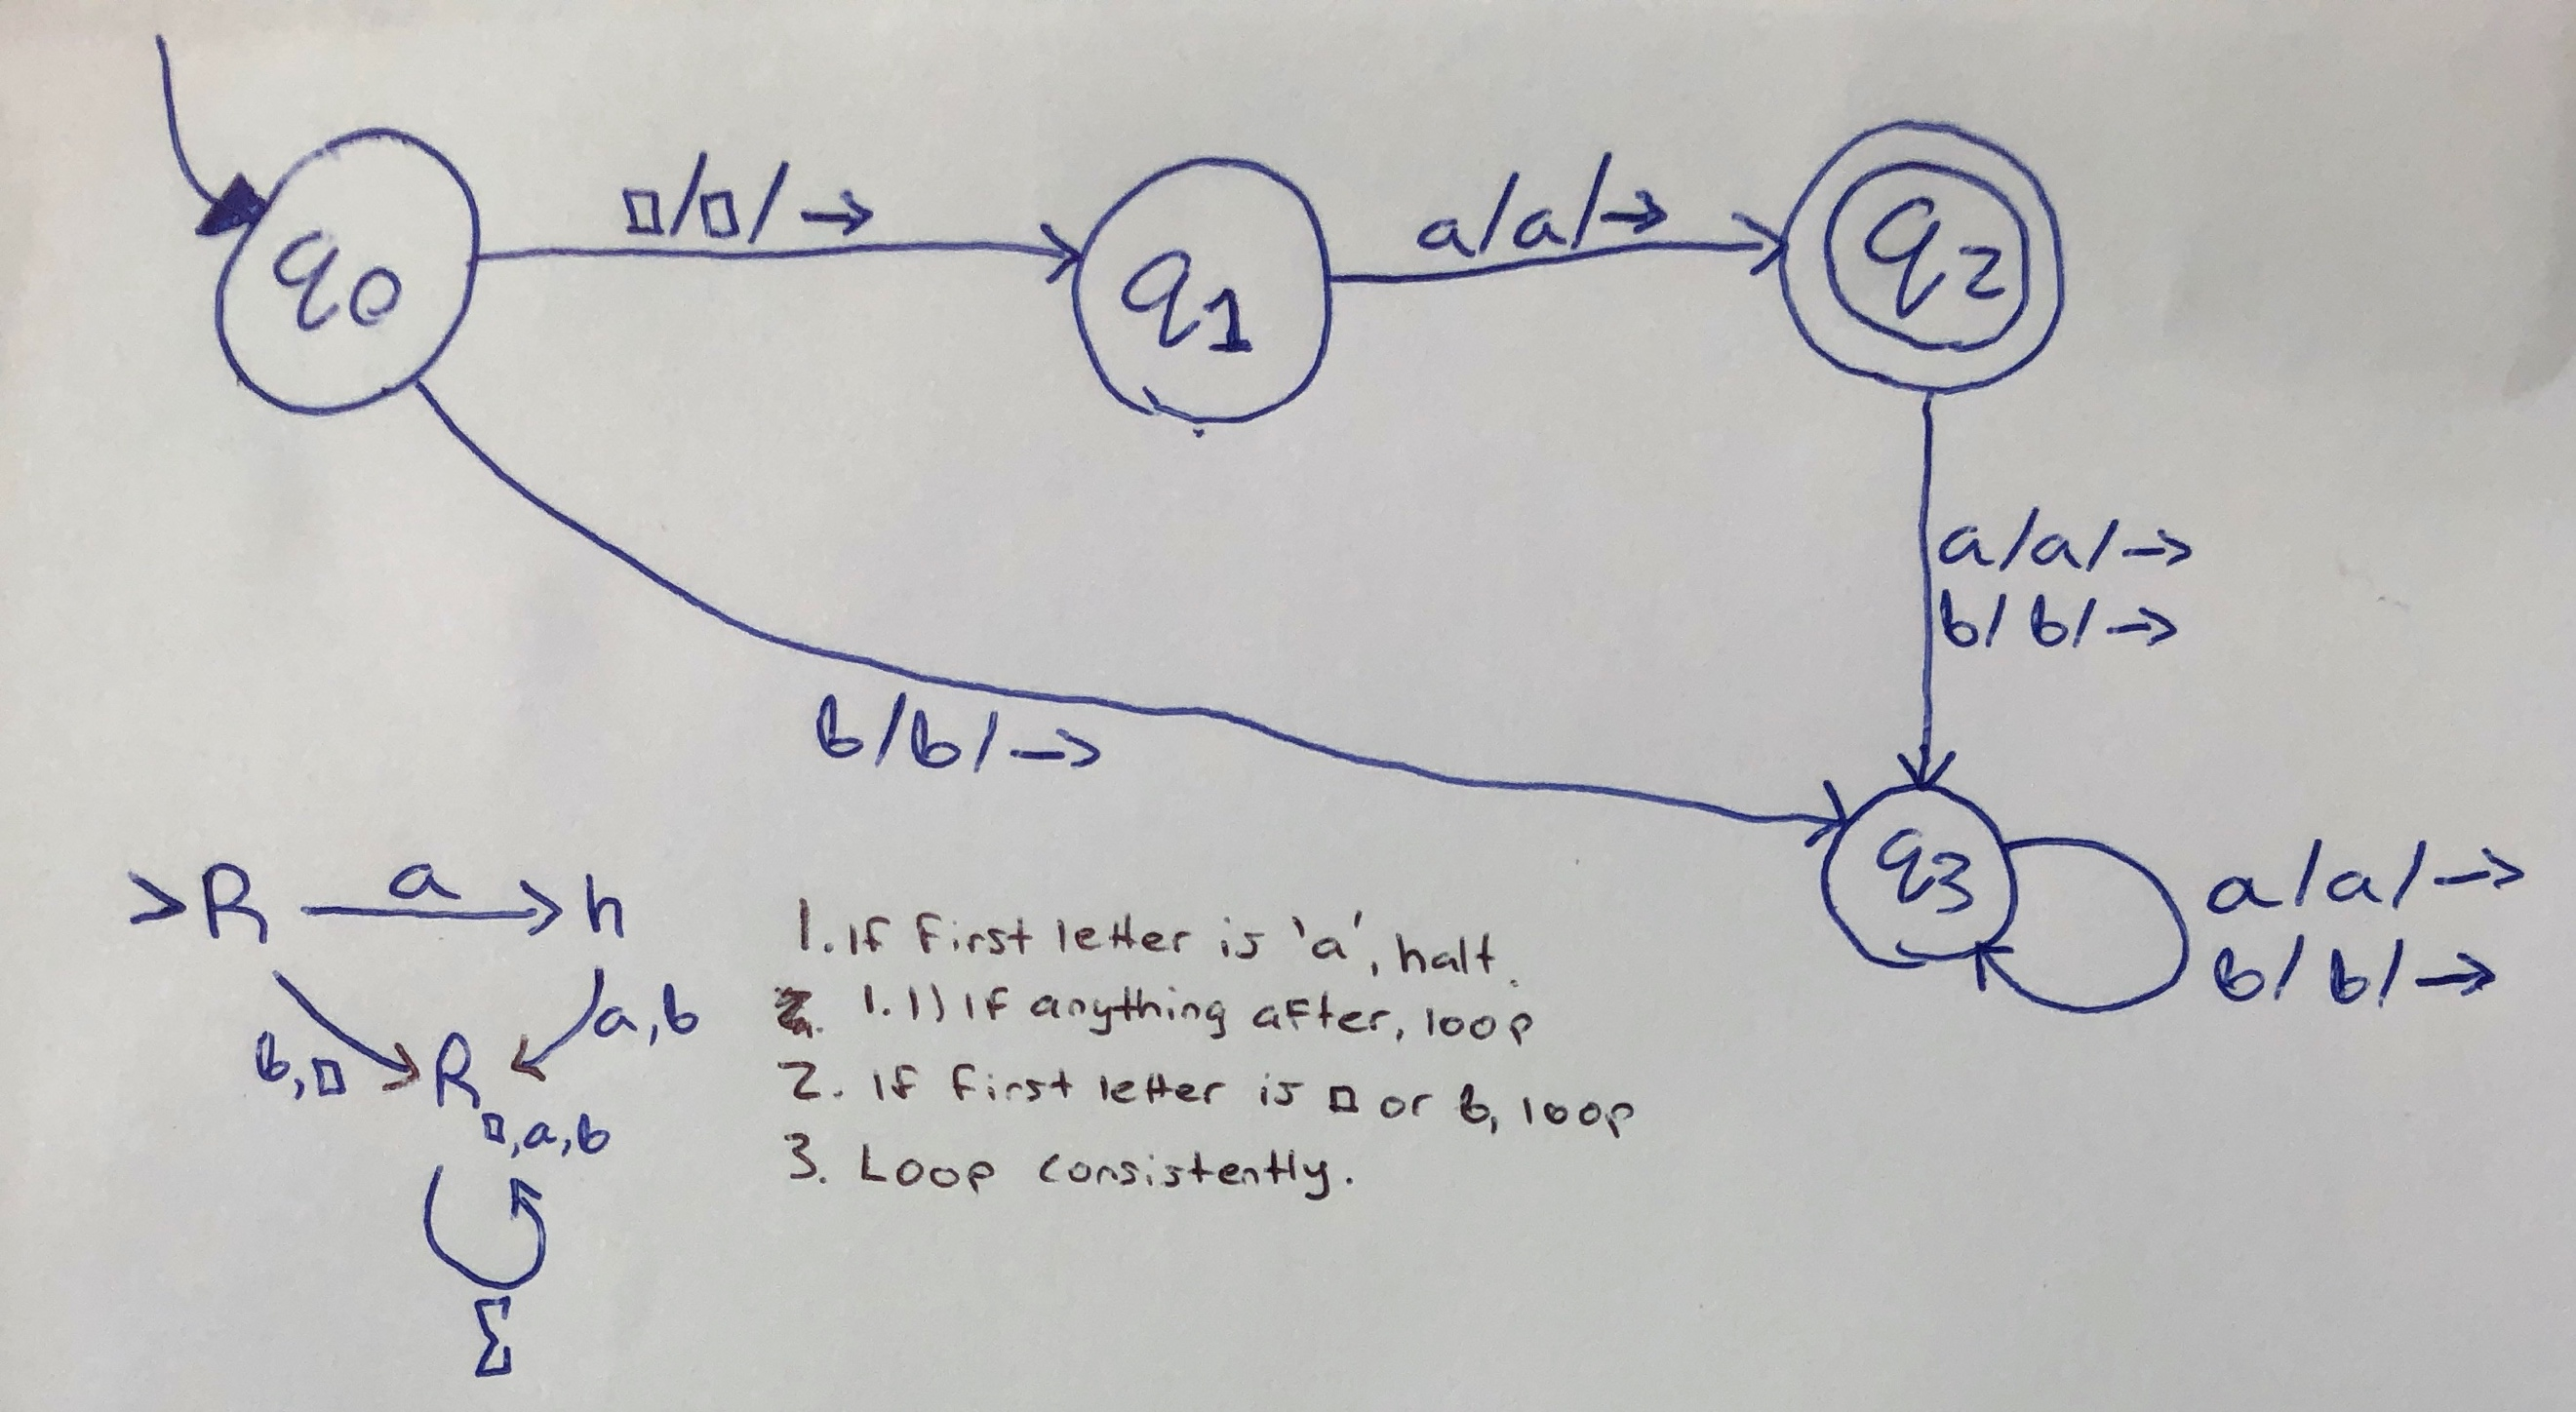 □/□/→
a/a/→
q0
q1
q2
a/a/→
b/b/→
b/b/→
q3
a/a/→
b/b/→
>R a h
b,□
R
a,b
□,a,b
Σ
1. If first letter is 'a', halt.
1.1) If anything after, loop
2. If first letter is □ or b, loop
3. Loop consistently.